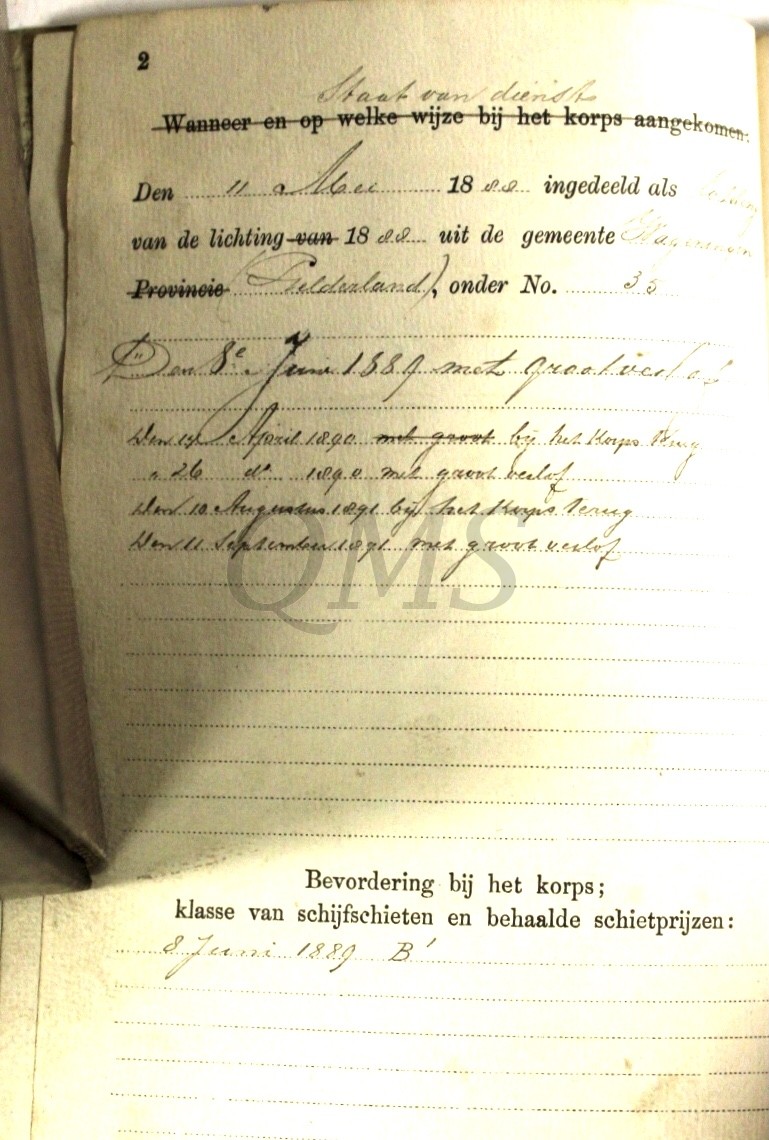 2
Staat van dienst
Wanneer en op welke wijze bij het korps aangekomen:
Den 11 Mei 1888 ingedeeld als
van de lichting van 1888 uit de gemeente Wageningen
Provincie (Gelderland), onder No. 35
Den 8e Juni 1889 met groot verlof
Den April 1890 met groot bij het Korps terug
" 26 do 1890 met groot verlof
Den 10 Augustus 1891 bij het Korps terug
Den 11 September 1891 met groot verlof
QMS
Bevordering bij het korps;
klasse van schijfschieten en behaalde schietprijzen:
8 Juni 1889 B'